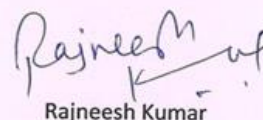 Rajneesh Kumar
Rajneesh Kumar